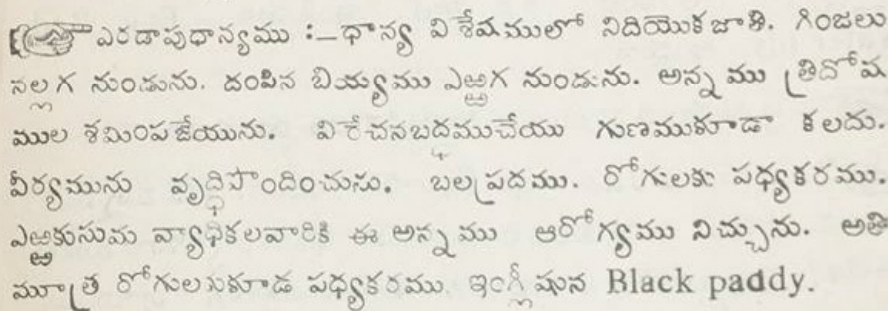 ఎరదాపుధాన్యము :—ధాన్య విశేషములో నిదియొకజాతి. గింజలు
నల్లగ నుండును. దంపిన బియ్యము ఎఱ్ఱగ నుండును. అన్నము త్రిదోష
ముల శమింపజేయును. విరేచనబద్ధముచేయు గుణముకూడా కలదు.
వీర్యమును వృద్ధిపొందించును. బలప్రదము. రోగులకు పధ్యకరము.
ఎఱ్ఱకుసుమ వ్యాధికలవారికి ఈ అన్నము ఆరోగ్యము నిచ్చును. అతి
మూత్ర రోగులకుకూడ పధ్యకరము. ఇంగ్లీషున Black paddy.